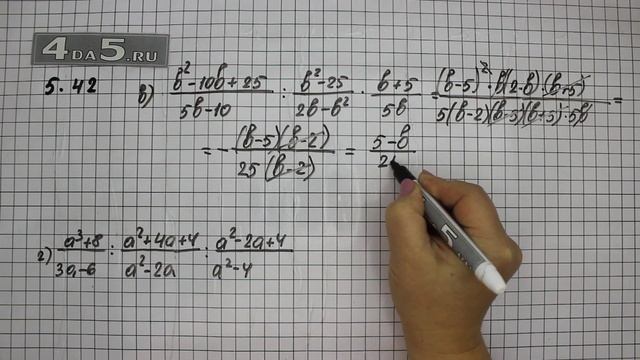 4DA5.RU
5.42
в) (b²-10b+25)/(5b-10) : (b²-25)/(2b-b²) · (b+5)/(5b) = ((b-5)²·b(2-b)·(b+5))/(5(b-2)(b-5)(b+5)·5b) =
= -((b-5)(b-2))/(25(b-2)) = (5-b)/2
г) (a³+8)/(3a-6) : (a²+4a+4)/(a²-2a) : (a²-2a+4)/(a²-4)